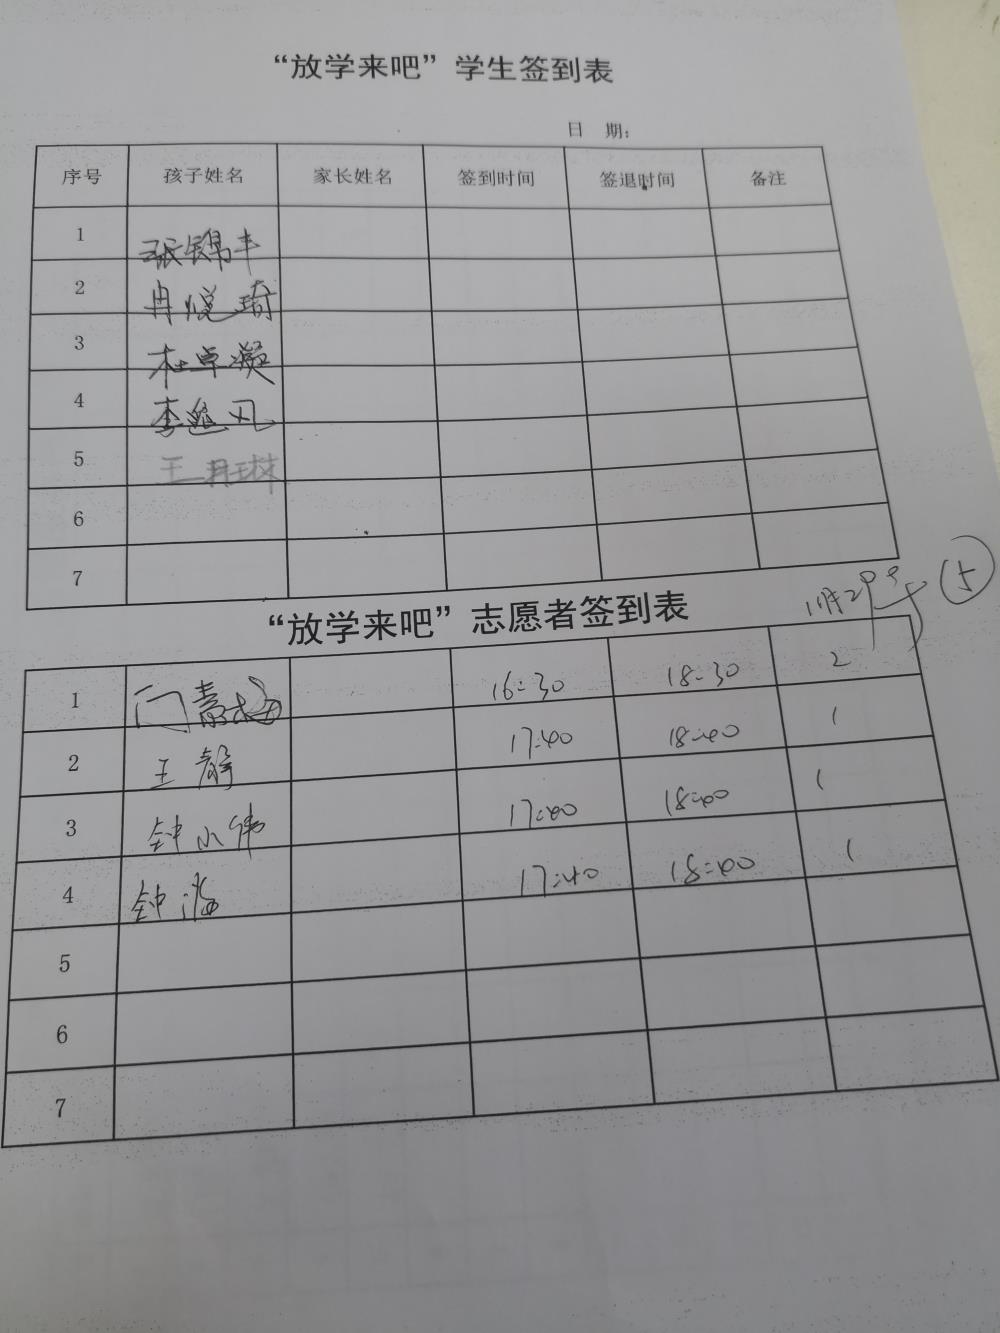 “放学来吧”学生签到表
日 期：
序号 孩子姓名 家长姓名 签到时间 签退时间 备注
1 张锦丰
2 冉悦琦
3 杜卓凝
4 李逸凡
5 王冉琳
6
7
“放学来吧”志愿者签到表
⑤
1 门青梅 16:30 18:30 2
2 王静 17:40 18:40 1
3 钟小伟 17:00 18:00 1
4 钟海 17:40 18:40 1
5
6
7